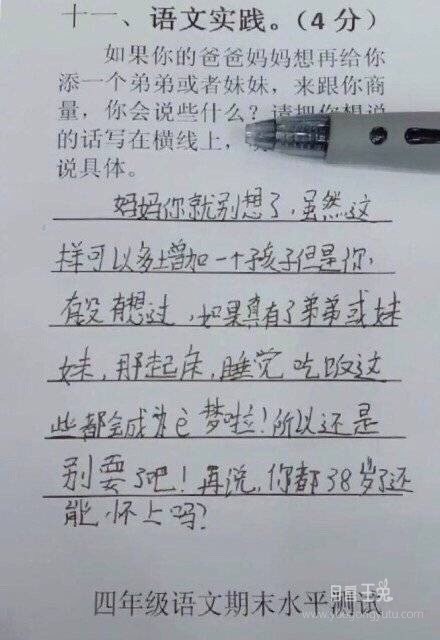 十一、语文实践。(4分)
如果你的爸爸妈妈想再给你
添一个弟弟或者妹妹，来跟你商
量，你会说些什么？请把你想说
的话写在横线上，
说具体。
妈妈你就别想了，虽然这
样可以多增加一个孩子但是你，
有没有想过，如果真有了弟弟或妹
妹，那起床，睡觉吃饭这
些都会成为它梦啦！所以还是
别要了吧！再说，你都38岁了还
能怀上吗？
四年级语文期末水平测试
www.yuzijiongyutu.com